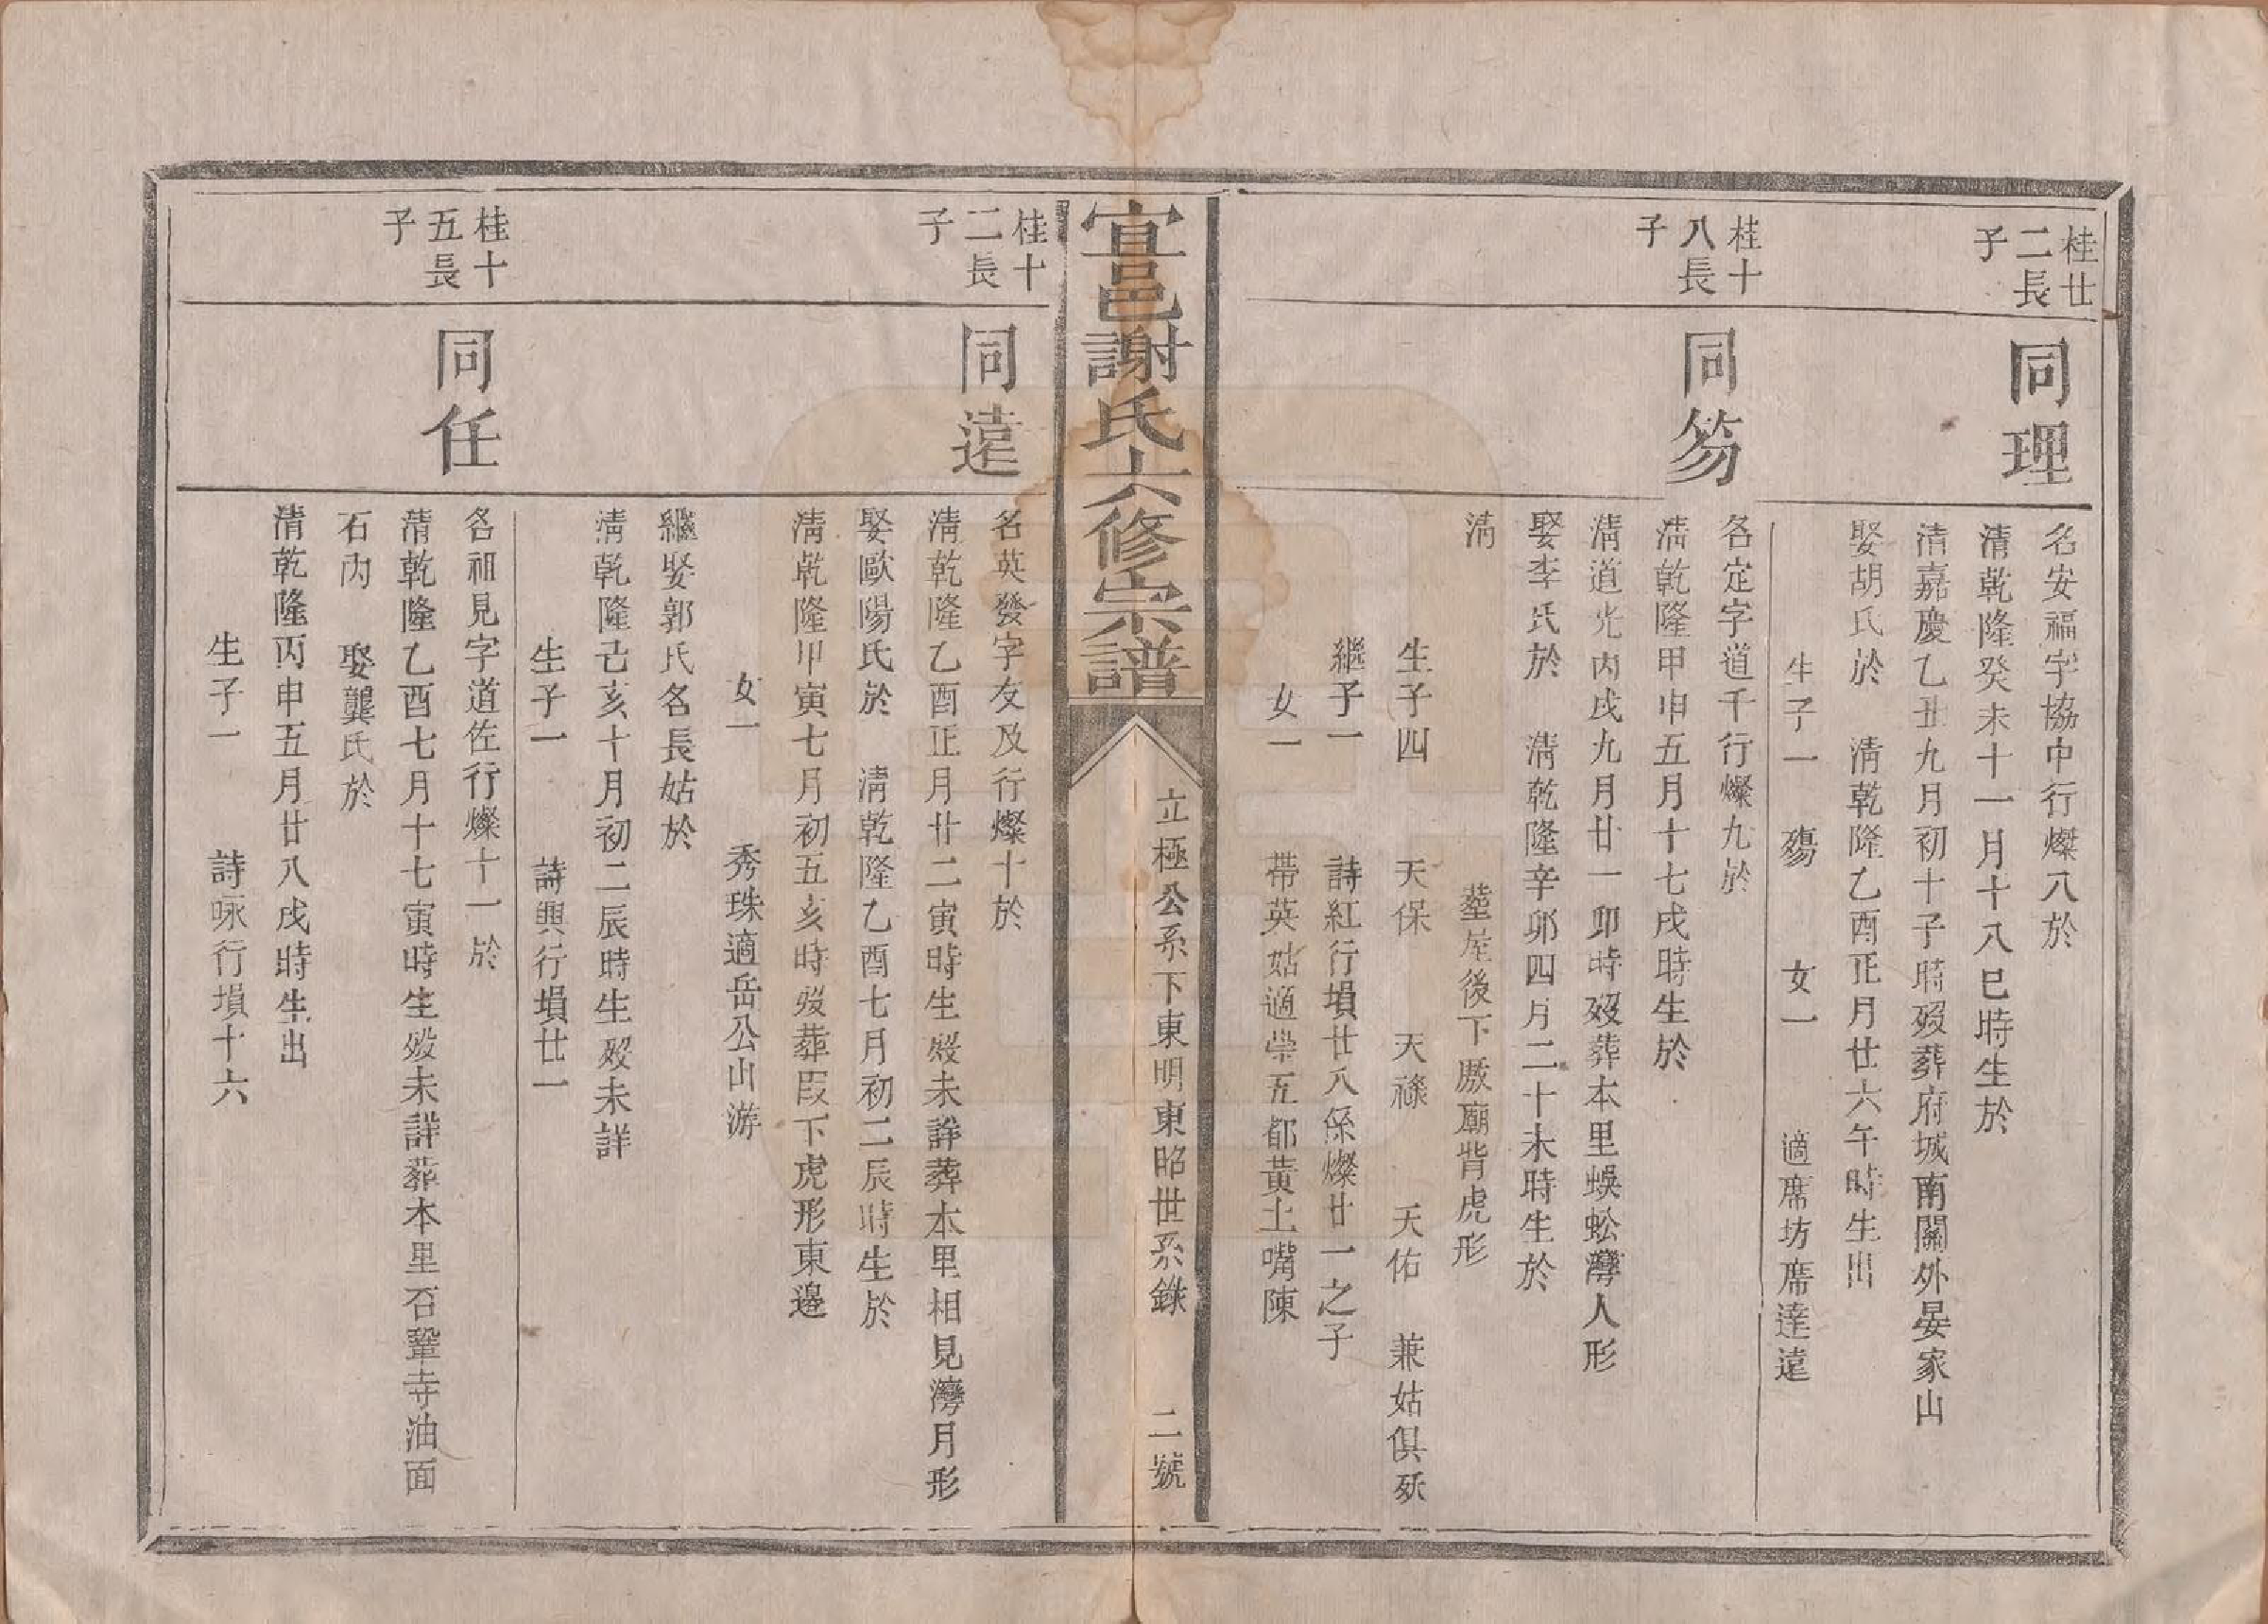 桂廿
二長
子
同理
名安福字協中行燦八於
清乾隆癸未十一月十八巳時生於
清嘉慶乙丑九月初十子時歿葬府城南關外晏家山
娶胡氏於 清乾隆乙酉正月廿六午時生出
生子一 殤 女一 適席坊席達遠
桂十
八長
子
同笏
名定字道千行燦九於
清乾隆甲申五月十七戌時生於
清道光丙戌九月廿一卯時歿葬本里蜈蚣灣人形
娶李氏於 清乾隆辛卯四月二十未時生於
清 塟屋後下厫廟背虎形
生子四 天保 天祿 天佑 兼姑俱殀
繼子一 詩紅行塤廿八係燦廿一之子
女一 帶英姑適崇五都黃土嘴陳
宜邑謝氏六修宗譜
立極公系下東明東昭世系錄 二號
桂十
二長
子
同遠
名英發字友及行燦十於
清乾隆乙酉正月廿二寅時生歿未詳葬本里相見灣月形
娶歐陽氏於 清乾隆乙酉七月初二辰時生於
清乾隆甲寅七月初五亥時歿葬段下虎形東邊
女一 秀珠適岳公山游
繼娶郭氏名長姑於
清乾隆己亥十月初二辰時生歿未詳
生子一 詩興行塤廿一
桂十
五長
子
同任
名祖見字道佐行燦十一於
清乾隆乙酉七月十七寅時生歿未詳葬本里石鞏寺油面
石內 娶龔氏於
清乾隆丙申五月廿八戌時生出
生子一 詩咏行塤十六